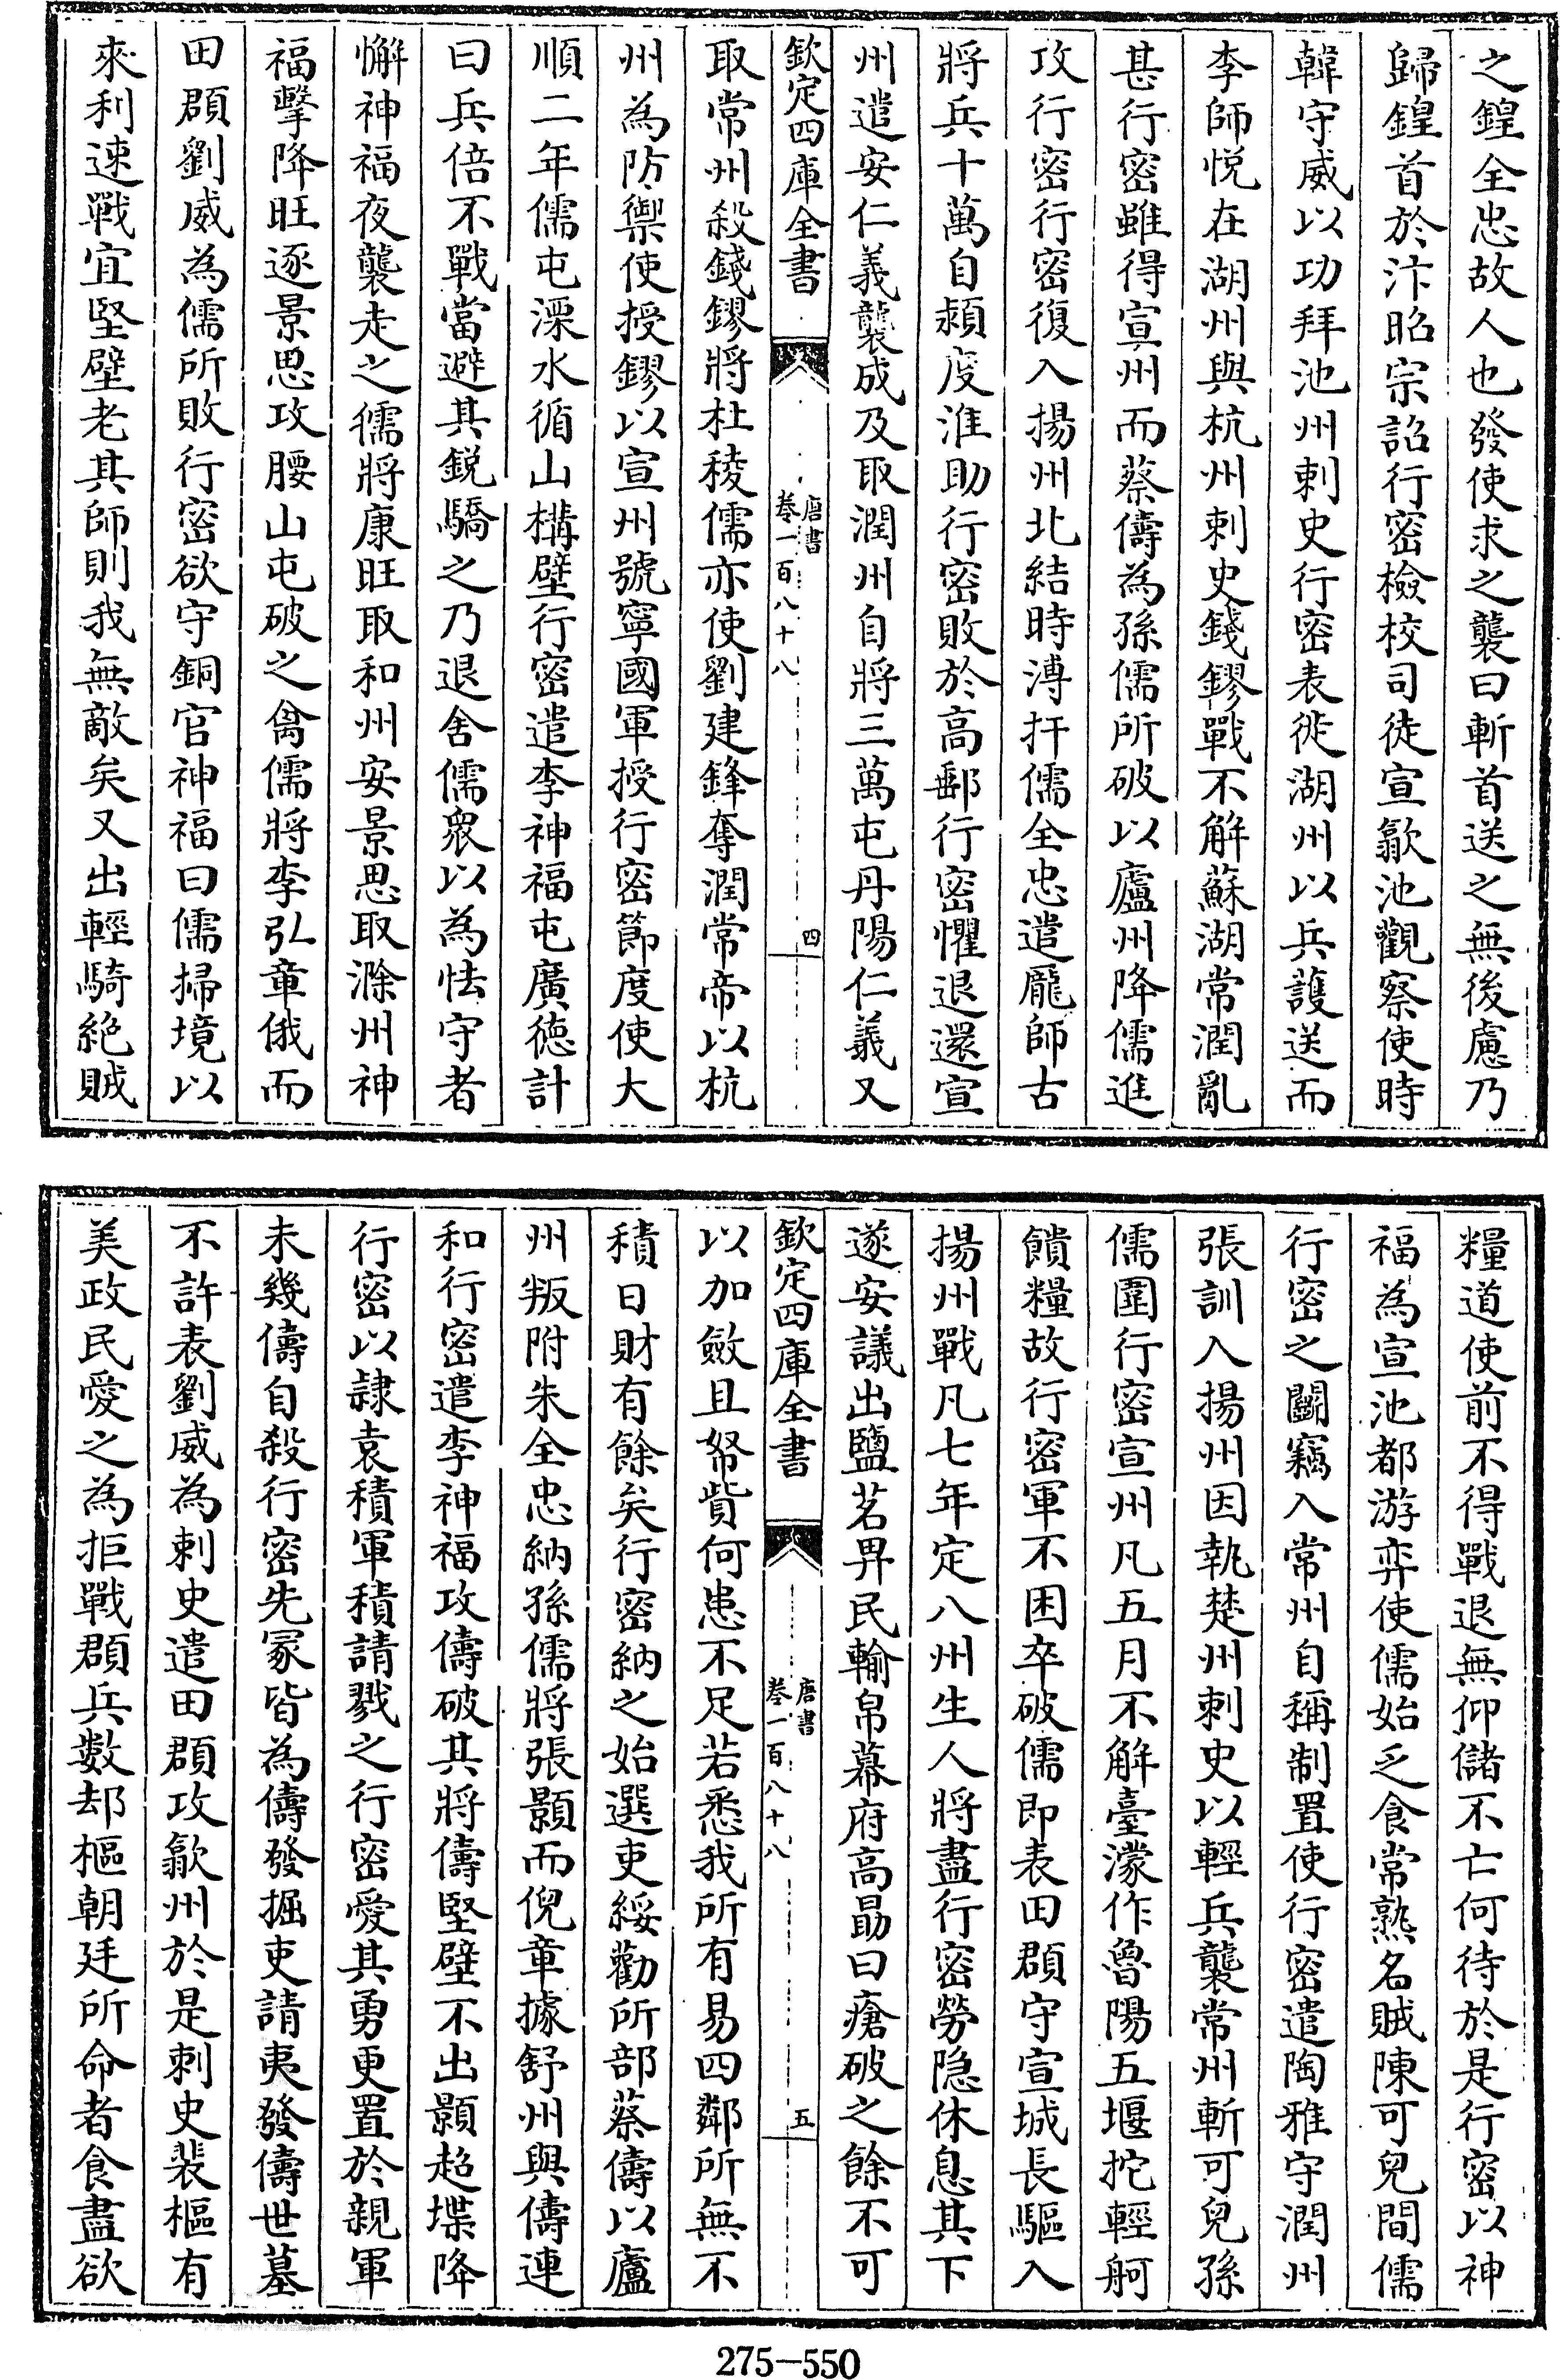 之鍠全忠故人也發使求之襲曰斬首送之無後慮乃
歸鍠首於汴昭宗詔行密檢校司徒宣歙池觀察使時
韓守威以功拜池州刺史行密表徙湖州以兵護送而
李師悅在湖州與杭州刺史錢鏐戰不解蘇湖常潤亂
甚行密雖得宣州而蔡儔為孫儒所破以廬州降儒進
攻行密行密復入揚州北結時溥扞儒全忠遣龐師古
將兵十萬自潁度淮助行密敗於高郵行密懼退還宣
州遣安仁義襲成及取潤州自將三萬屯丹陽仁義又
欽定四庫全書
唐書
卷一百八十八
四
取常州殺錢鏐將杜稜儒亦使劉建鋒奪潤常帝以杭
州為防禦使授鏐以宣州號寧國軍授行密節度使大
順二年儒屯溧水循山構壁行密遣李神福屯廣德計
曰兵倍不戰當避其銳驕之乃退舍儒眾以為怯守者
懈神福夜襲走之儒將康旺取和州安景思取滁州神
福擊降旺逐景思攻腰山屯破之禽儒將李弘章俄而
田頵劉威為儒所敗行密欲守銅官神福曰儒掃境以
來利速戰宜堅壁老其師則我無敵矣又出輕騎絕賊
糧道使前不得戰退無仰儲不亡何待於是行密以神
福為宣池都游弈使儒始乏食常熟名賊陳可兒間儒
行密之鬭竊入常州自稱制置使行密遣陶雅守潤州
張訓入揚州因執楚州刺史以輕兵襲常州斬可兒孫
儒圍行密宣州凡五月不解臺濛作魯陽五堰拕輕舸
饋糧故行密軍不困卒破儒即表田頵守宣城長驅入
揚州戰凡七年定八州生人將盡行密勞隱休息其下
遂安議出鹽茗畀民輸帛幕府高勗曰瘡破之餘不可
欽定四庫全書
唐書
卷一百八十八
五
以加斂且帑貲何患不足若悉我所有易四鄰所無不
積日財有餘矣行密納之始選吏綏勸所部蔡儔以廬
州叛附朱全忠納孫儒將張顥而倪章據舒州與儔連
和行密遣李神福攻儔破其將儔堅壁不出顥超堞降
行密以隸袁積軍積請戮之行密愛其勇更置於親軍
未幾儔自殺行密先冢皆為儔發掘吏請夷發儔世墓
不許表劉威為刺史遣田頵攻歙州於是刺史裴樞有
美政民愛之為拒戰頵兵數却樞朝廷所命者食盡欲
275-550